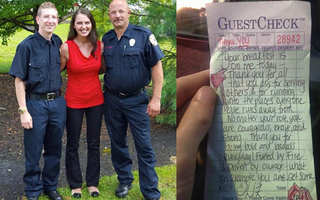 GUESTCHECK™
THANK YOU 28942
Your breakfast is
on me today -
Thank you for all
that you do; for serving
others & for running
into the places everyone
else runs away from.
No matter your role, you
are courageous, brave, and
strong. Thank you for
being bold and badass
everyday! Fueled by fire
driven by courage - what
an example you are. Get some
rest